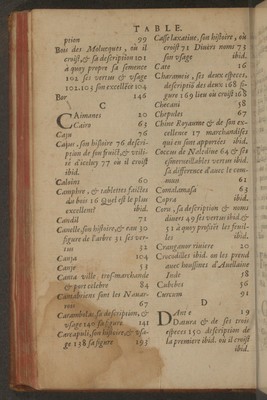 TABLE.
ptien 99
Bois des Moluques, où il
croist, & sa description 101
à quoy propre sa semence
102 ses vertus & vsage
102.103 son excellẽce 104
Bor 246
C
Chimanes 20
Cairo 63
Caju 76
Cajus, son histoire 76 descri-
ption de son fruiƈt, & vtili-
té d'iceluy 77 où il croist
ibid.
Calvine 60
Camphre, & tablettes faites
du bois 16 Quel est le plus
excellent? ibid.
Candil 71
Canelle, son histoire, & eau 30
figure de l'arbre 31 ses ver-
tus 32
Canja 104
Canje 53
Canta ville tres-marchande
& port celebre 84
Cantabriens sont les Nauar-
rois 67
Carambolas, sa description, &
vsage 140 sa figure 141
Carcapuli, son histoire, & vsa-
ge 138 sa figure 139
Casse laxatiue, son histoire, où
croist 72 Diuers noms 75
son vsage ibid.
Cate 16
Charameis, ses deux especes,
descriptiõ des deux 168 fi-
gure 169 lieu où croist 168
Checani 58
Chepules 67
Chine Royaume & de son ex-
cellence 17 marchandises
qui en sont apportées ibid.
Coccus de Maledine 64 & ses
esmerueillables vertus ibid.
sa difference d'auec le com-
mun 62
Cantalamasa 63
Copra ibid.
Coru, sa description & noms
diuers 49 ses vertus ibid &
51 à quoy profite les feuil-
les ibid.
Cranganor riuiere 20
Crocodiles ibid. on les prend
auec boussines d'Auellaine
Inde 58
Cubebes 56
Curcum 91
D
Dane 19
Datura & de ses trois
especes 150 description de
la premiere ibid. où il croist
ibid.